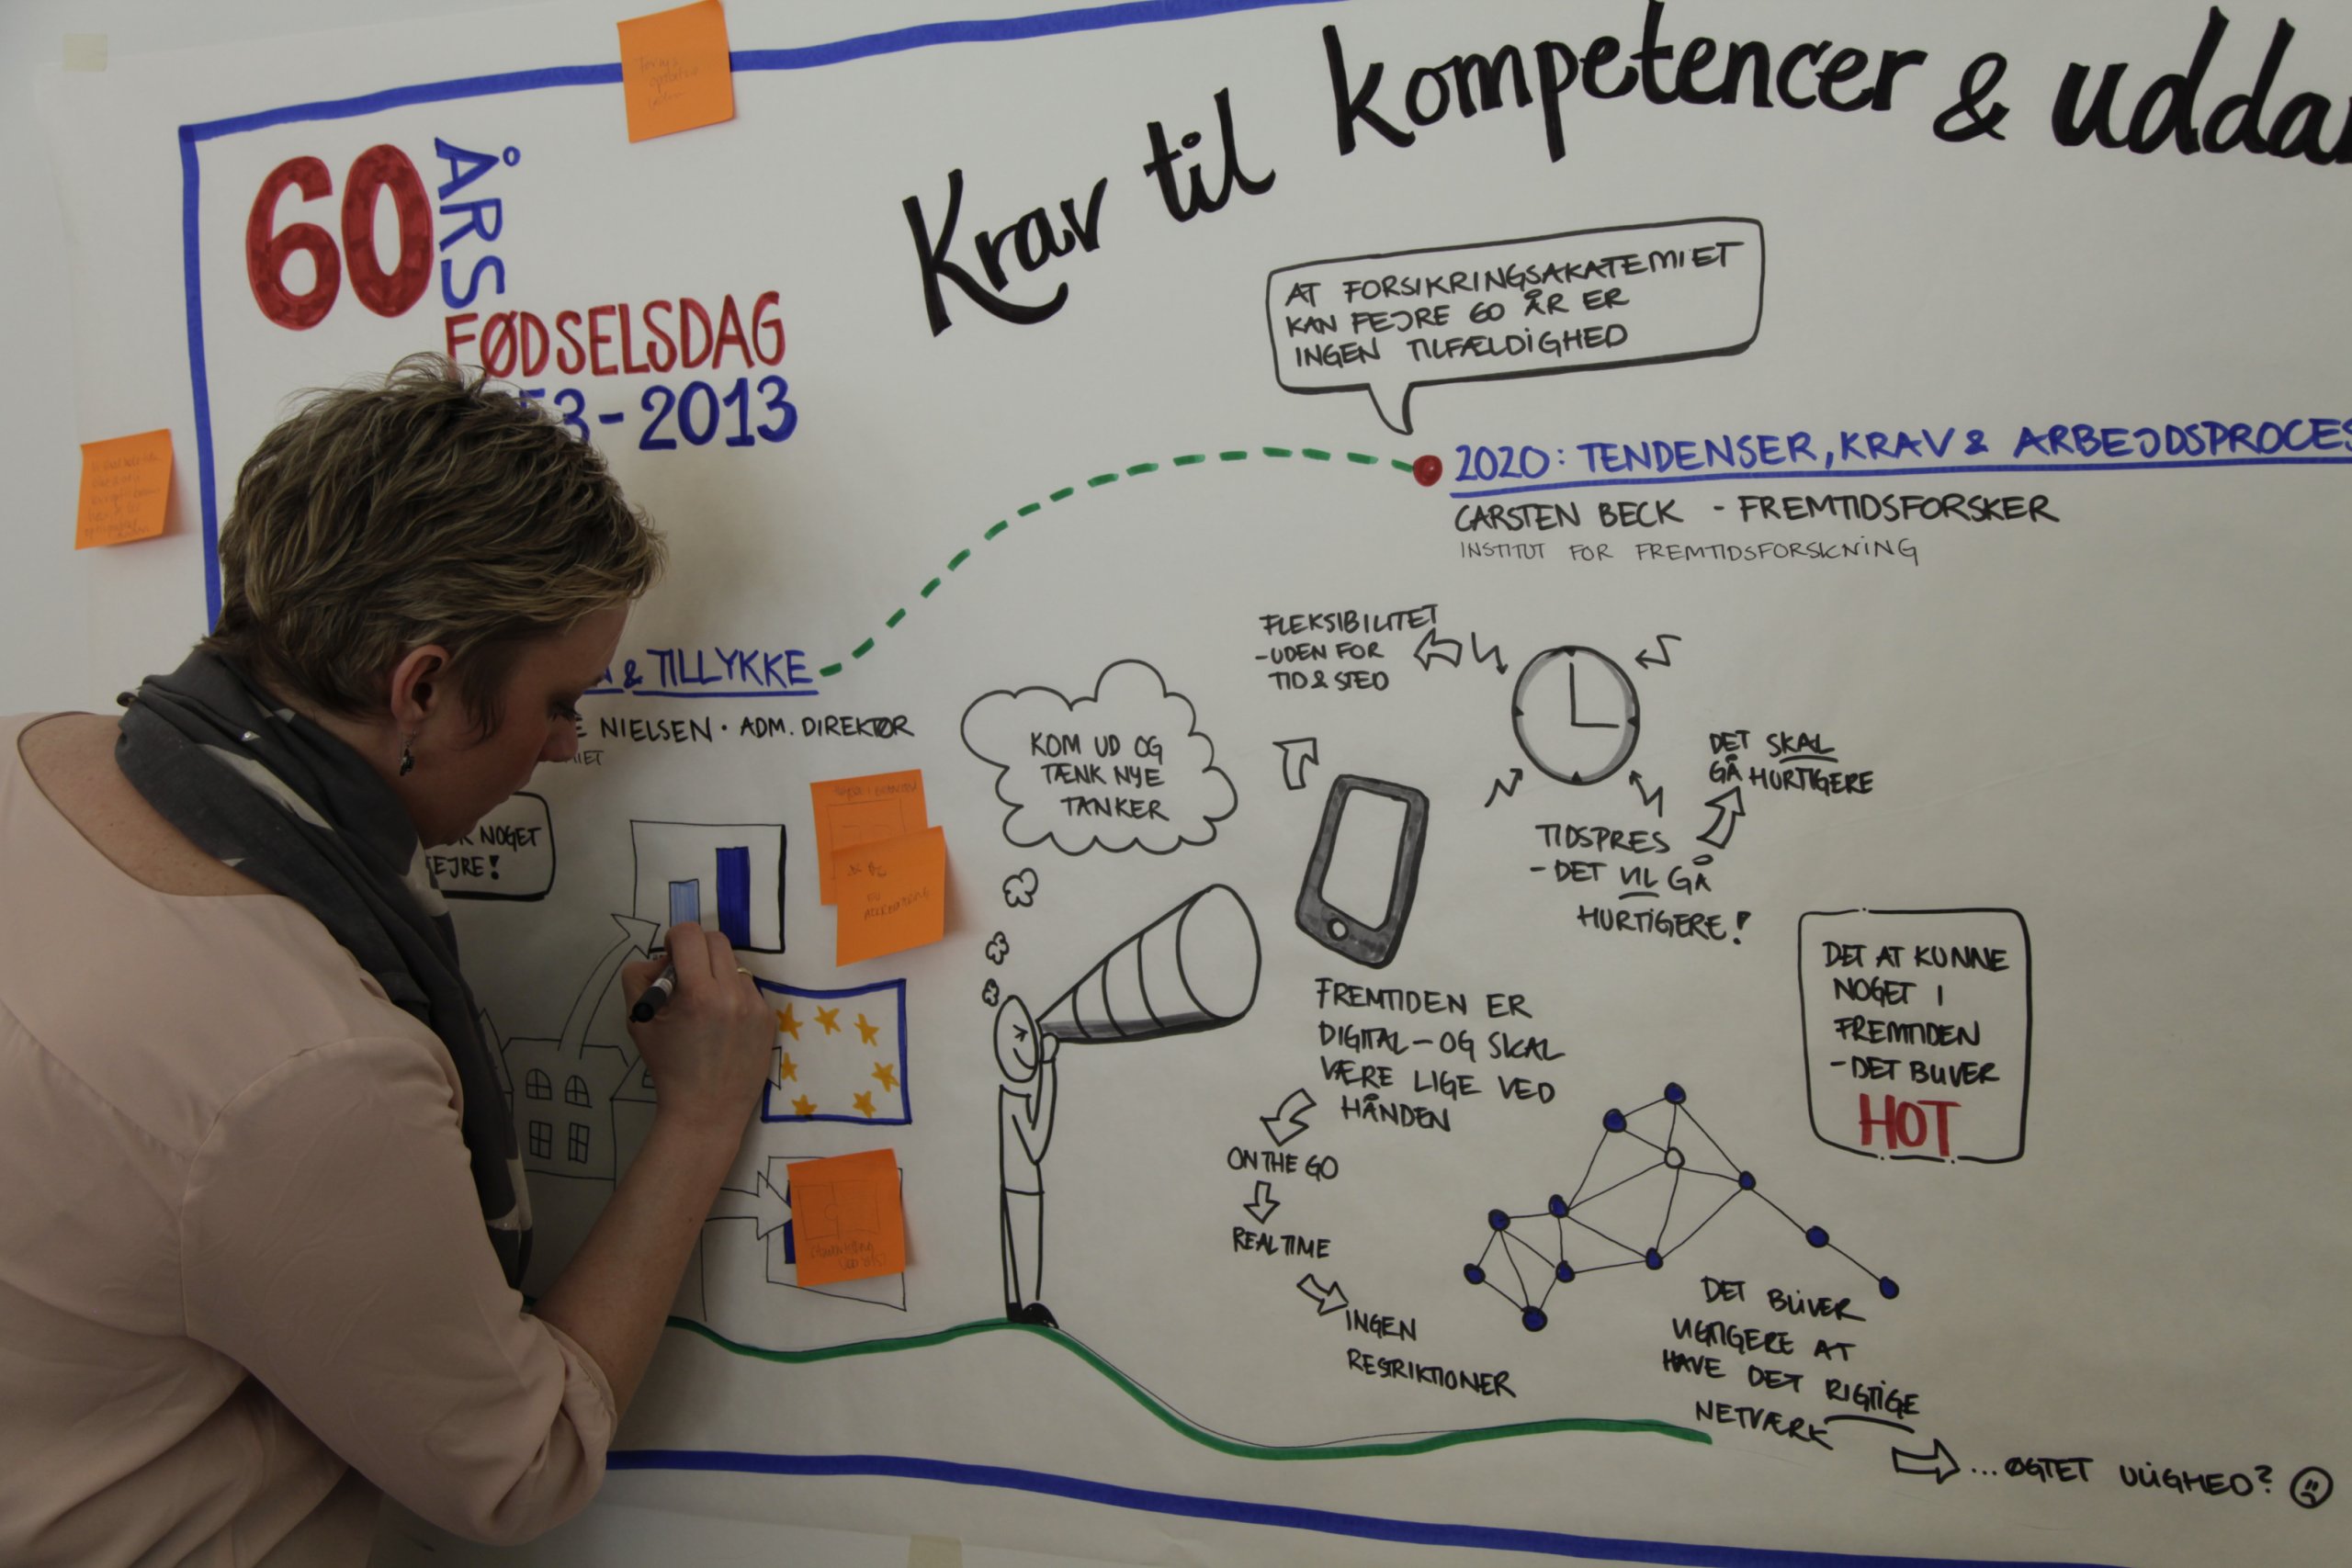 60
ÅRS
FØDSELSDAG
53-2013
Krav til kompetencer & uddan
AT FORSIKRINGSAKATEMIET
KAN FEJRE 60 ÅR ER
INGEN TILFÆLDIGHED
2020: TENDENSER, KRAV & ARBEJDSPROCES
CARSTEN BECK - FREMTIDSFORSKER
INSTITUT FOR FREMTIDSFORSKNING
& TILLYKKE
NIELSEN · ADM. DIREKTØR
NOGET
EJRE!
KOM UD OG
TÆNK NYE
TANKER
FLEKSIBILITET
-UDEN FOR
TID & STED
DET SKAL
GÅ HURTIGERE
TIDSPRES
- DET VIL GÅ
HURTIGERE!
FREMTIDEN ER
DIGITAL - OG SKAL
VÆRE LIGE VED
HÅNDEN
ON THE GO
REALTIME
INGEN
RESTRIKTIONER
DET AT KUNNE
NOGET I
FREMTIDEN
- DET BLIVER
HOT
DET BLIVER
VIGTIGERE AT
HAVE DET RIGTIGE
NETVÆRK
... ØGTET ULIGHED?